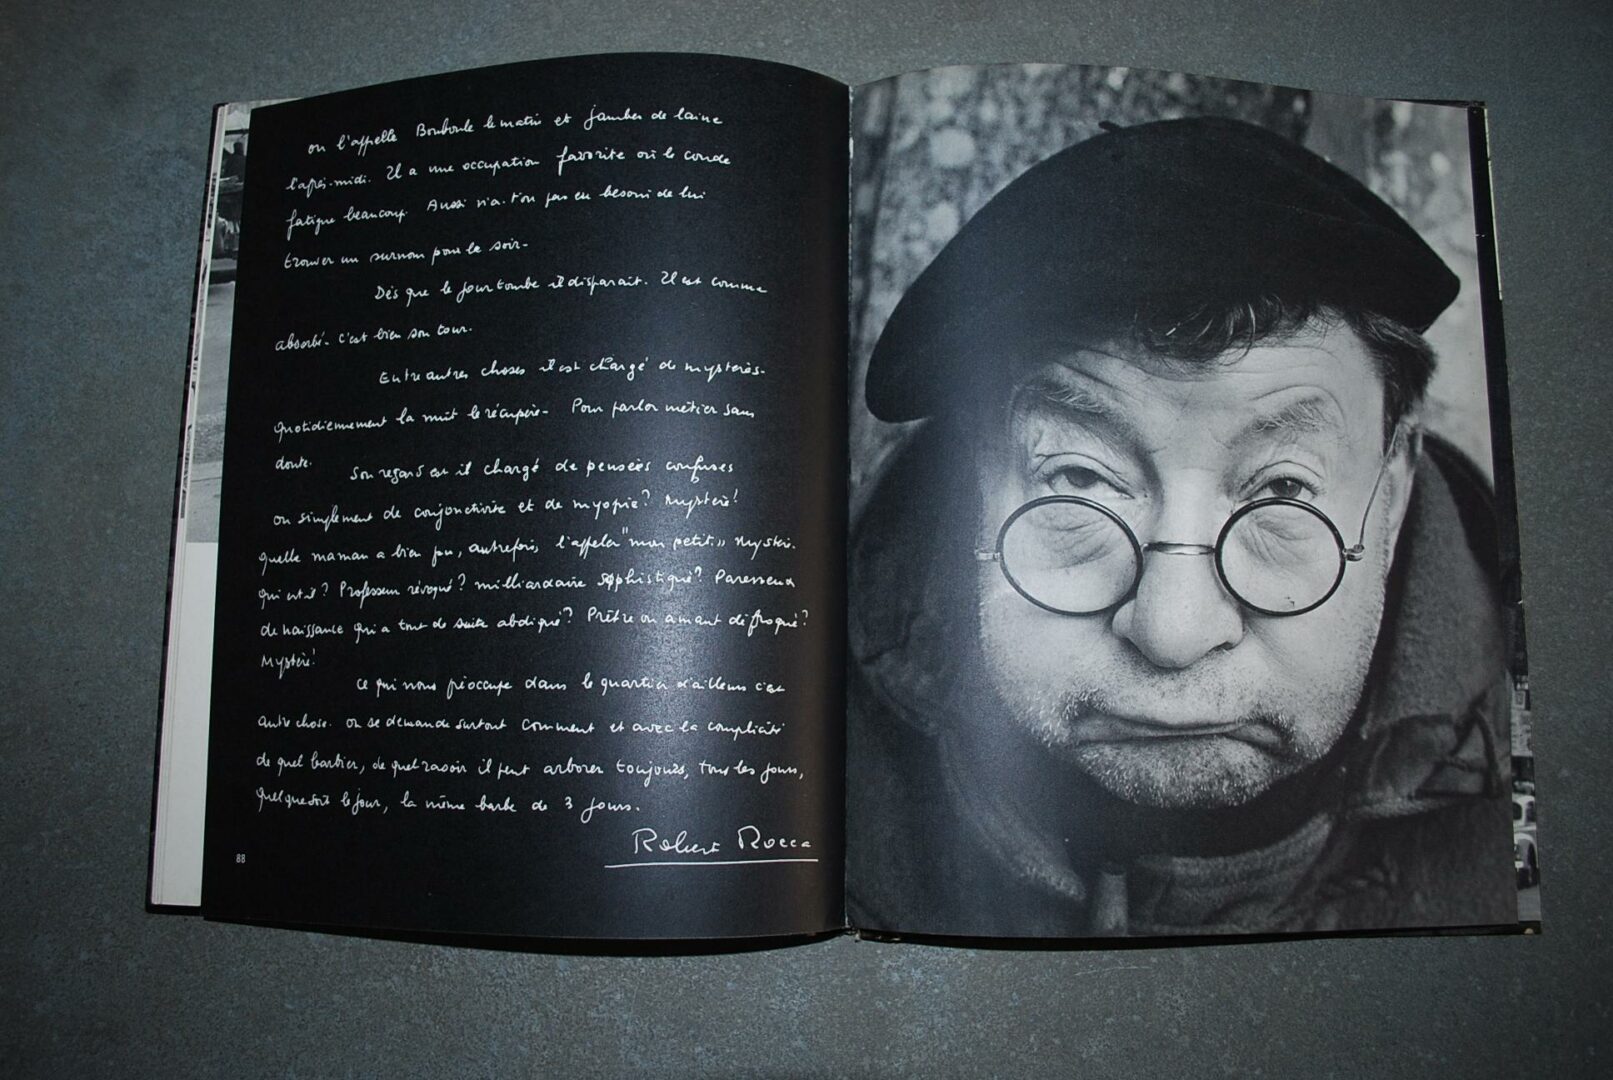 on l'appelle Bouboule le matin et jambes de laine
l'après-midi. Il a une occupation favorite où le coude
fatigue beaucoup. Aussi n'a-t'on pas eu besoin de lui
trouver un surnom pour le soir-
Dès que le jour tombe il disparait. Il est comme
absorbé- c'est bien son tour.
Entre autres choses il est chargé de mystères-
quotidiennement la nuit le récupère- Pour parler métier sans
doute.
Son regard est il chargé de pensées confuses
ou simplement de conjonctivite et de myopie? Mystère!
quelle maman a bien pu, autrefois, l'appeler "mon petit" Mystère.
qui est il? Professeur révoqué? milliardaire sophistiqué? Paresseux
de naissance qui a tout de suite abdiqué? Prêtre ou amant défroqué?
Mystère!
ce qui nous préoccupe dans le quartier d'ailleurs c'est
autre chose. on se demande surtout comment et avec la complicité
de quel barbier, de quel rasoir il peut arborer toujours, tous les jours,
quel que soit le jour, la même barbe de 3 jours.
Robert Rocca
88